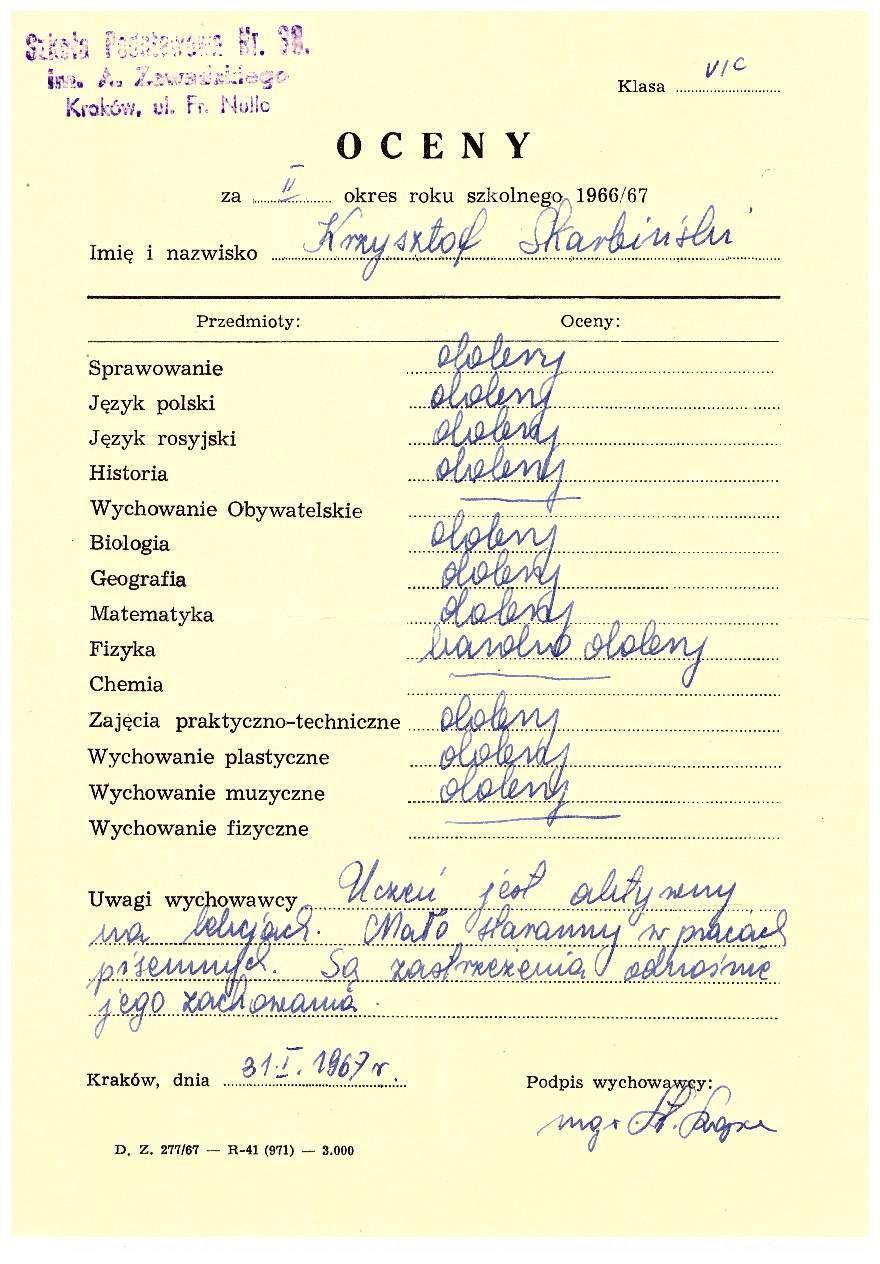 Szkoła Podstawowa Nr. 38.
im. A. Zawadzkiego
Kraków, ul. Fr. Nullo
Klasa VIC
OCENY
za II okres roku szkolnego 1966/67
Imię i nazwisko Krzysztof Skarbiński
Przedmioty: Oceny:
Sprawowanie dobry
Język polski dobry
Język rosyjski dobry
Historia dobry
Wychowanie Obywatelskie
Biologia dobry
Geografia dobry
Matematyka dobry
Fizyka bardzo dobry
Chemia
Zajęcia praktyczno-techniczne dobry
Wychowanie plastyczne dobry
Wychowanie muzyczne dobry
Wychowanie fizyczne
Uwagi wychowawcy Uczeń jest aktywny
na lekcjach. Mało staranny w pracach
pisemnych. Są zastrzeżenia odnośnie
jego zachowania.
Kraków, dnia 31.I.1967 r. Podpis wychowawcy:
mgr
D. Z. 277/67 — R-41 (971) — 3.000